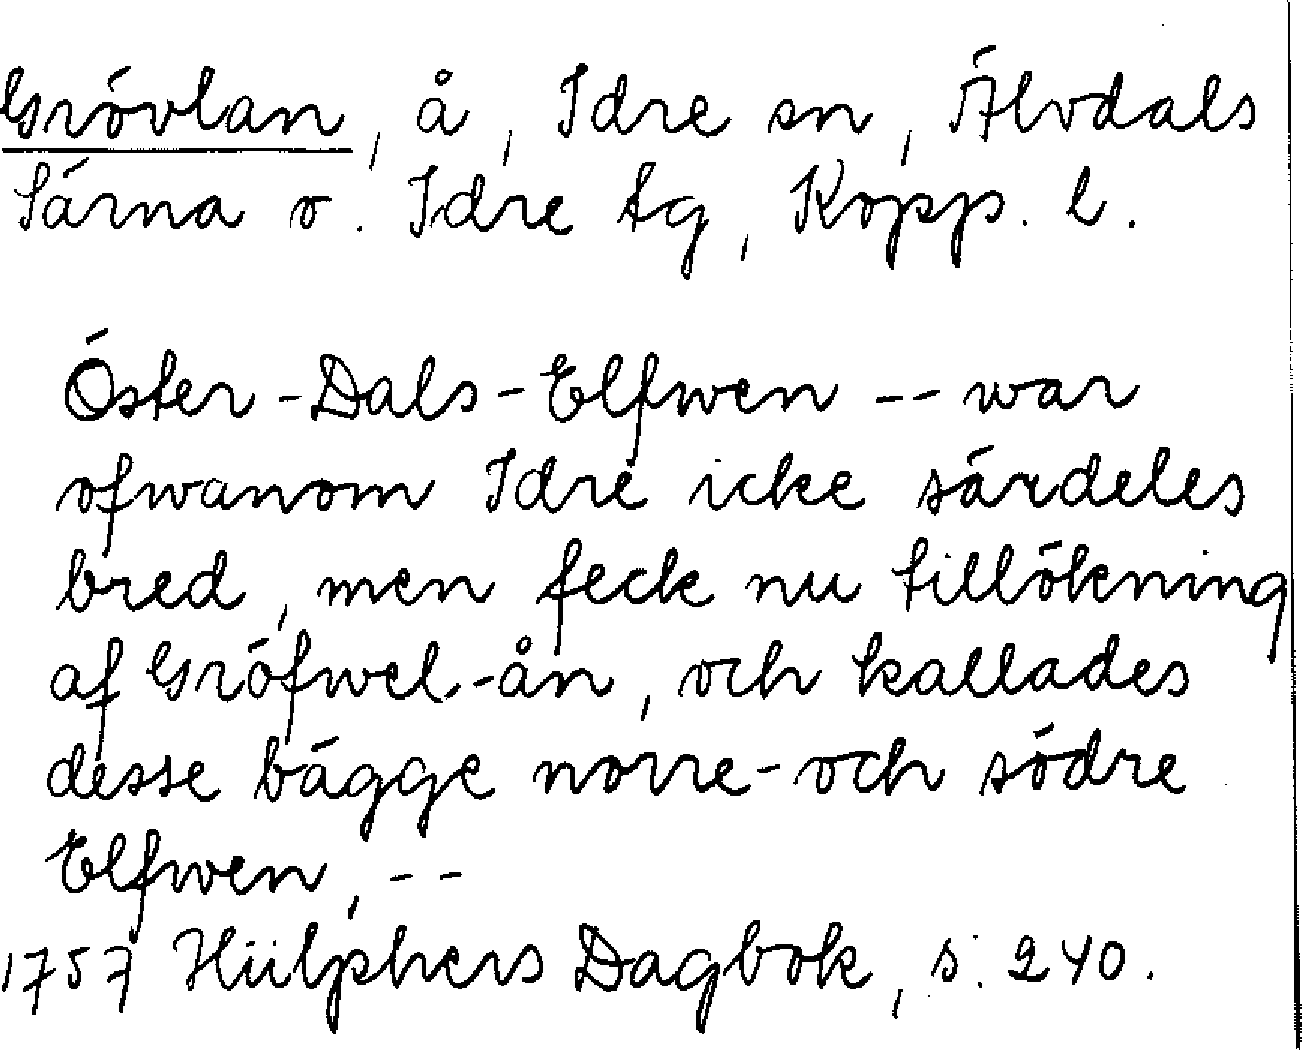 Grövlan, å, Idre sn, Älvdals
Särna o. Idre tg, Kopp. l.
Öster-Dals-Elfwen -- war
ofwanom Idre icke särdeles
bred, men feck nu tillökning
af Gröfwel.-ån, och kallades
desse bägge norre- och södre
Elfwen, --
1757 Hülphers Dagbok, s. 240.